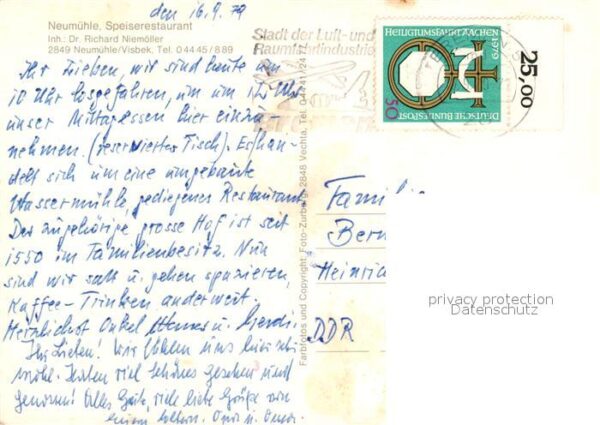 den 16.9.79
Neumühle, Speiserestaurant
Inh.: Dr. Richard Niemöller
2849 Neumühle/Visbek, Tel. 04445/889
Ihr Lieben, wir sind heute um
10 Uhr losgefahren, um um 12 Uhr
unser Mittagessen hier einzu-
nehmen. (reservierter Tisch). Es han-
delt sich um eine umgebaute
Wassermühle, gediegenes Restaurant
Der zugehörige grosse Hof ist seit
1550 im Familienbesitz. Nun
sind wir satt u. gehen spazieren,
Kaffee-Trinken anderweit.
Herzlichst Onkel u. Gerdi.
Ihr Lieben! Wir fühlen uns hier sehr
wohl. Haben viel schönes gesehen und
genossen! Alles Gute, viele liebe Grüße von
Farbfotos und Copyright: Foto-Zurborg, 2848 Vechta, Tel. 04441/
Stadt der Luft- und
Raumfahrtindustrie
HEILIGTUMSFAHRT AACHEN 1979
50
DEUTSCHE BUNDESPOST
25,00
Famili
Bern
Heinric
DDR
privacy protection
Datenschutz